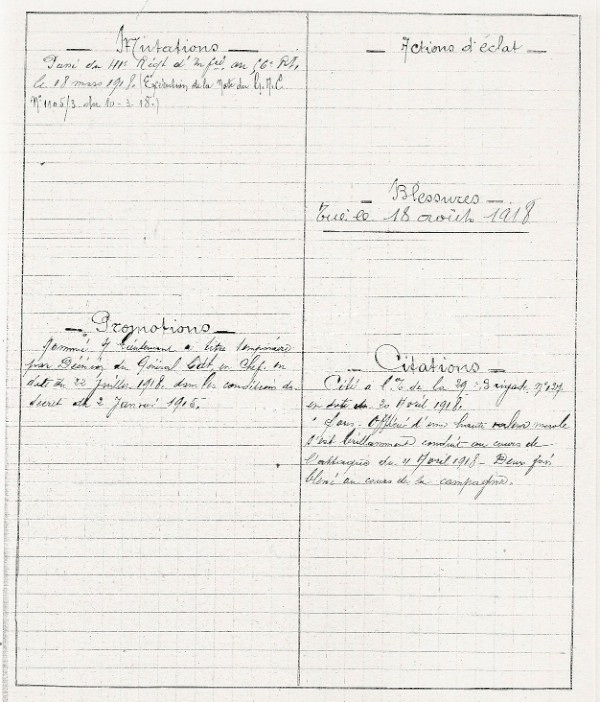 Mutations
Passé du 111e Régt d'Infie au 6e
le 18 mars 1918. (Exécution de la Note du G.Q.G
N° 1105/3 du 10-3-18.)
Promotions
Nommé Lieutenant à titre temporaire
par Décision du Général Cdt en Chef en
date du 22 Juillet 1918. dans les conditions du
décret du 2 Janvier 1915.
Actions d'éclat
Blessures
Tué le 18 août 1918
Citations
Cité à l'O. de la Brigade N° 127
en date du 20 Avril 1918.
Officier d'une haute valeur morale
s'est brillamment conduit au cours de
l'attaque du 4 Avril 1918 - Deux fois
blessé au cours de la campagne.